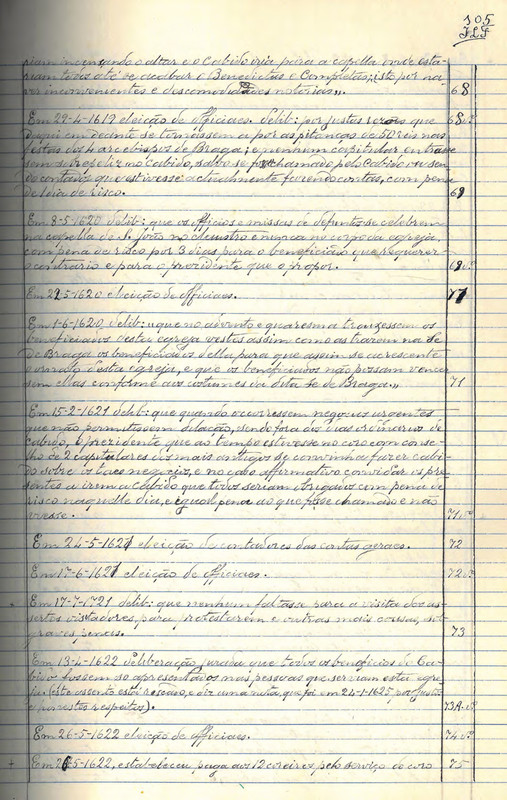 105
F.L.F
riam incençando o altar e o Cabido iria para a capella onde esta-
riam todos até se acabar o Benedictus e Completas; isto por ha-
ver inconvenientes e descomodidades notorias,,. 68
Em 29-4-1619 eleição de officiaes. delib: por justas rezões que
daqui em deante se tornassem a por as pitanças de 50 reis nas
festas dos 4 arcebispos de Braga; e nenhum capitular entrasse
sem sobrepeliz no Cabido, salvo se fosse chamado pelo Cabido ou sen-
do contador que estivesse actualmente fazendo contas, com pena
de leia de risco. 69
68 v.º
Em 8-5-1620 delib: que os officios e missas de defuntos se celebrem
na capella de S. João no claustro e nunca no corpo da egreja,
com pena de risco por 3 dias para o beneficiado que requerer
o contrario e para o prezidente que o propor. 69 v.º
Em 29-5-1620 eleição de officiaes. 71
Em 1-6-1620, delib: ,,que no advento e quaresma trouxessem os
beneficiados desta egreja vestes assim como as trazem na Sé
de Braga os beneficiados della para que assim se acrescente
o ornato desta igreja, e que os beneficiados não possam vencer
sem ellas conforme aos costumes da dita Sé de Braga.,, 71
Em 15-2-1621 delib: que quando occorressem negocios urgentes
que não permittissem dilação, sendo fora dos dias ordinarios de
cabido, o prezidente que ao tempo estivesse no coro com conse-
lho de 2 capitulares dos mais antigos se convinha fazer cabi-
do sobre os taes negocios, e no caso affirmativo convidar os pre-
sentes a irem a Cabido que todos seriam obrigados com pena de
risco naquelle dia, e igual pena ao que fosse chamado e não
viesse. 71 v.º
Em 24-5-1621 eleição de contadores das contas geraes. 72
Em 17-6-1621 eleição de officiaes. 72 v.º
Em 17-7-1721 delib: que nenhum faltasse para a visita dos
vistadores, para protestarem e outras mais cousas, sob
graves penas. 73
Em 13-4-1622 deliberação jurada que todos os beneficios do Ca-
bido fossem só apresentados nas pessoas que serviam esta egre-
ja (este assento está riscado, e diz uma nota, que foi em 24-1-1625 por justos
e honestos respeitos). 73A. v.º
Em 26-5-1622 eleição de officiaes. 74 v.º
+ Em 26-5-1622, estabeleceu paga aos 12 coreiros pelo serviço do coro 75